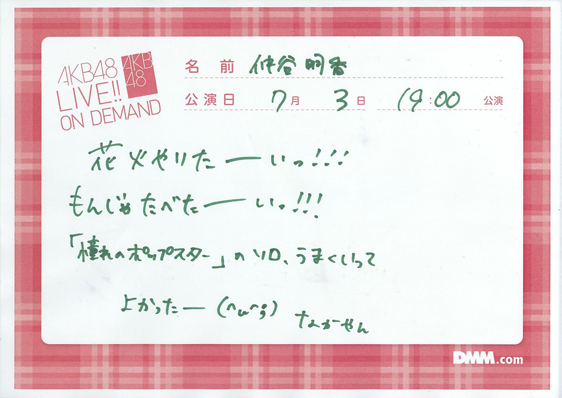 AKB48
LIVE!!
ON DEMAND
AKB
48
名前 仲谷明香
公演日 7月 3日 19:00 公演
花火やりたーいっ!!!
もんじゃたべたーいっ!!!
「憧れのポップスター」のソロ、うまくいって
よかったー(^ω^;)
なかやん
DMM.com